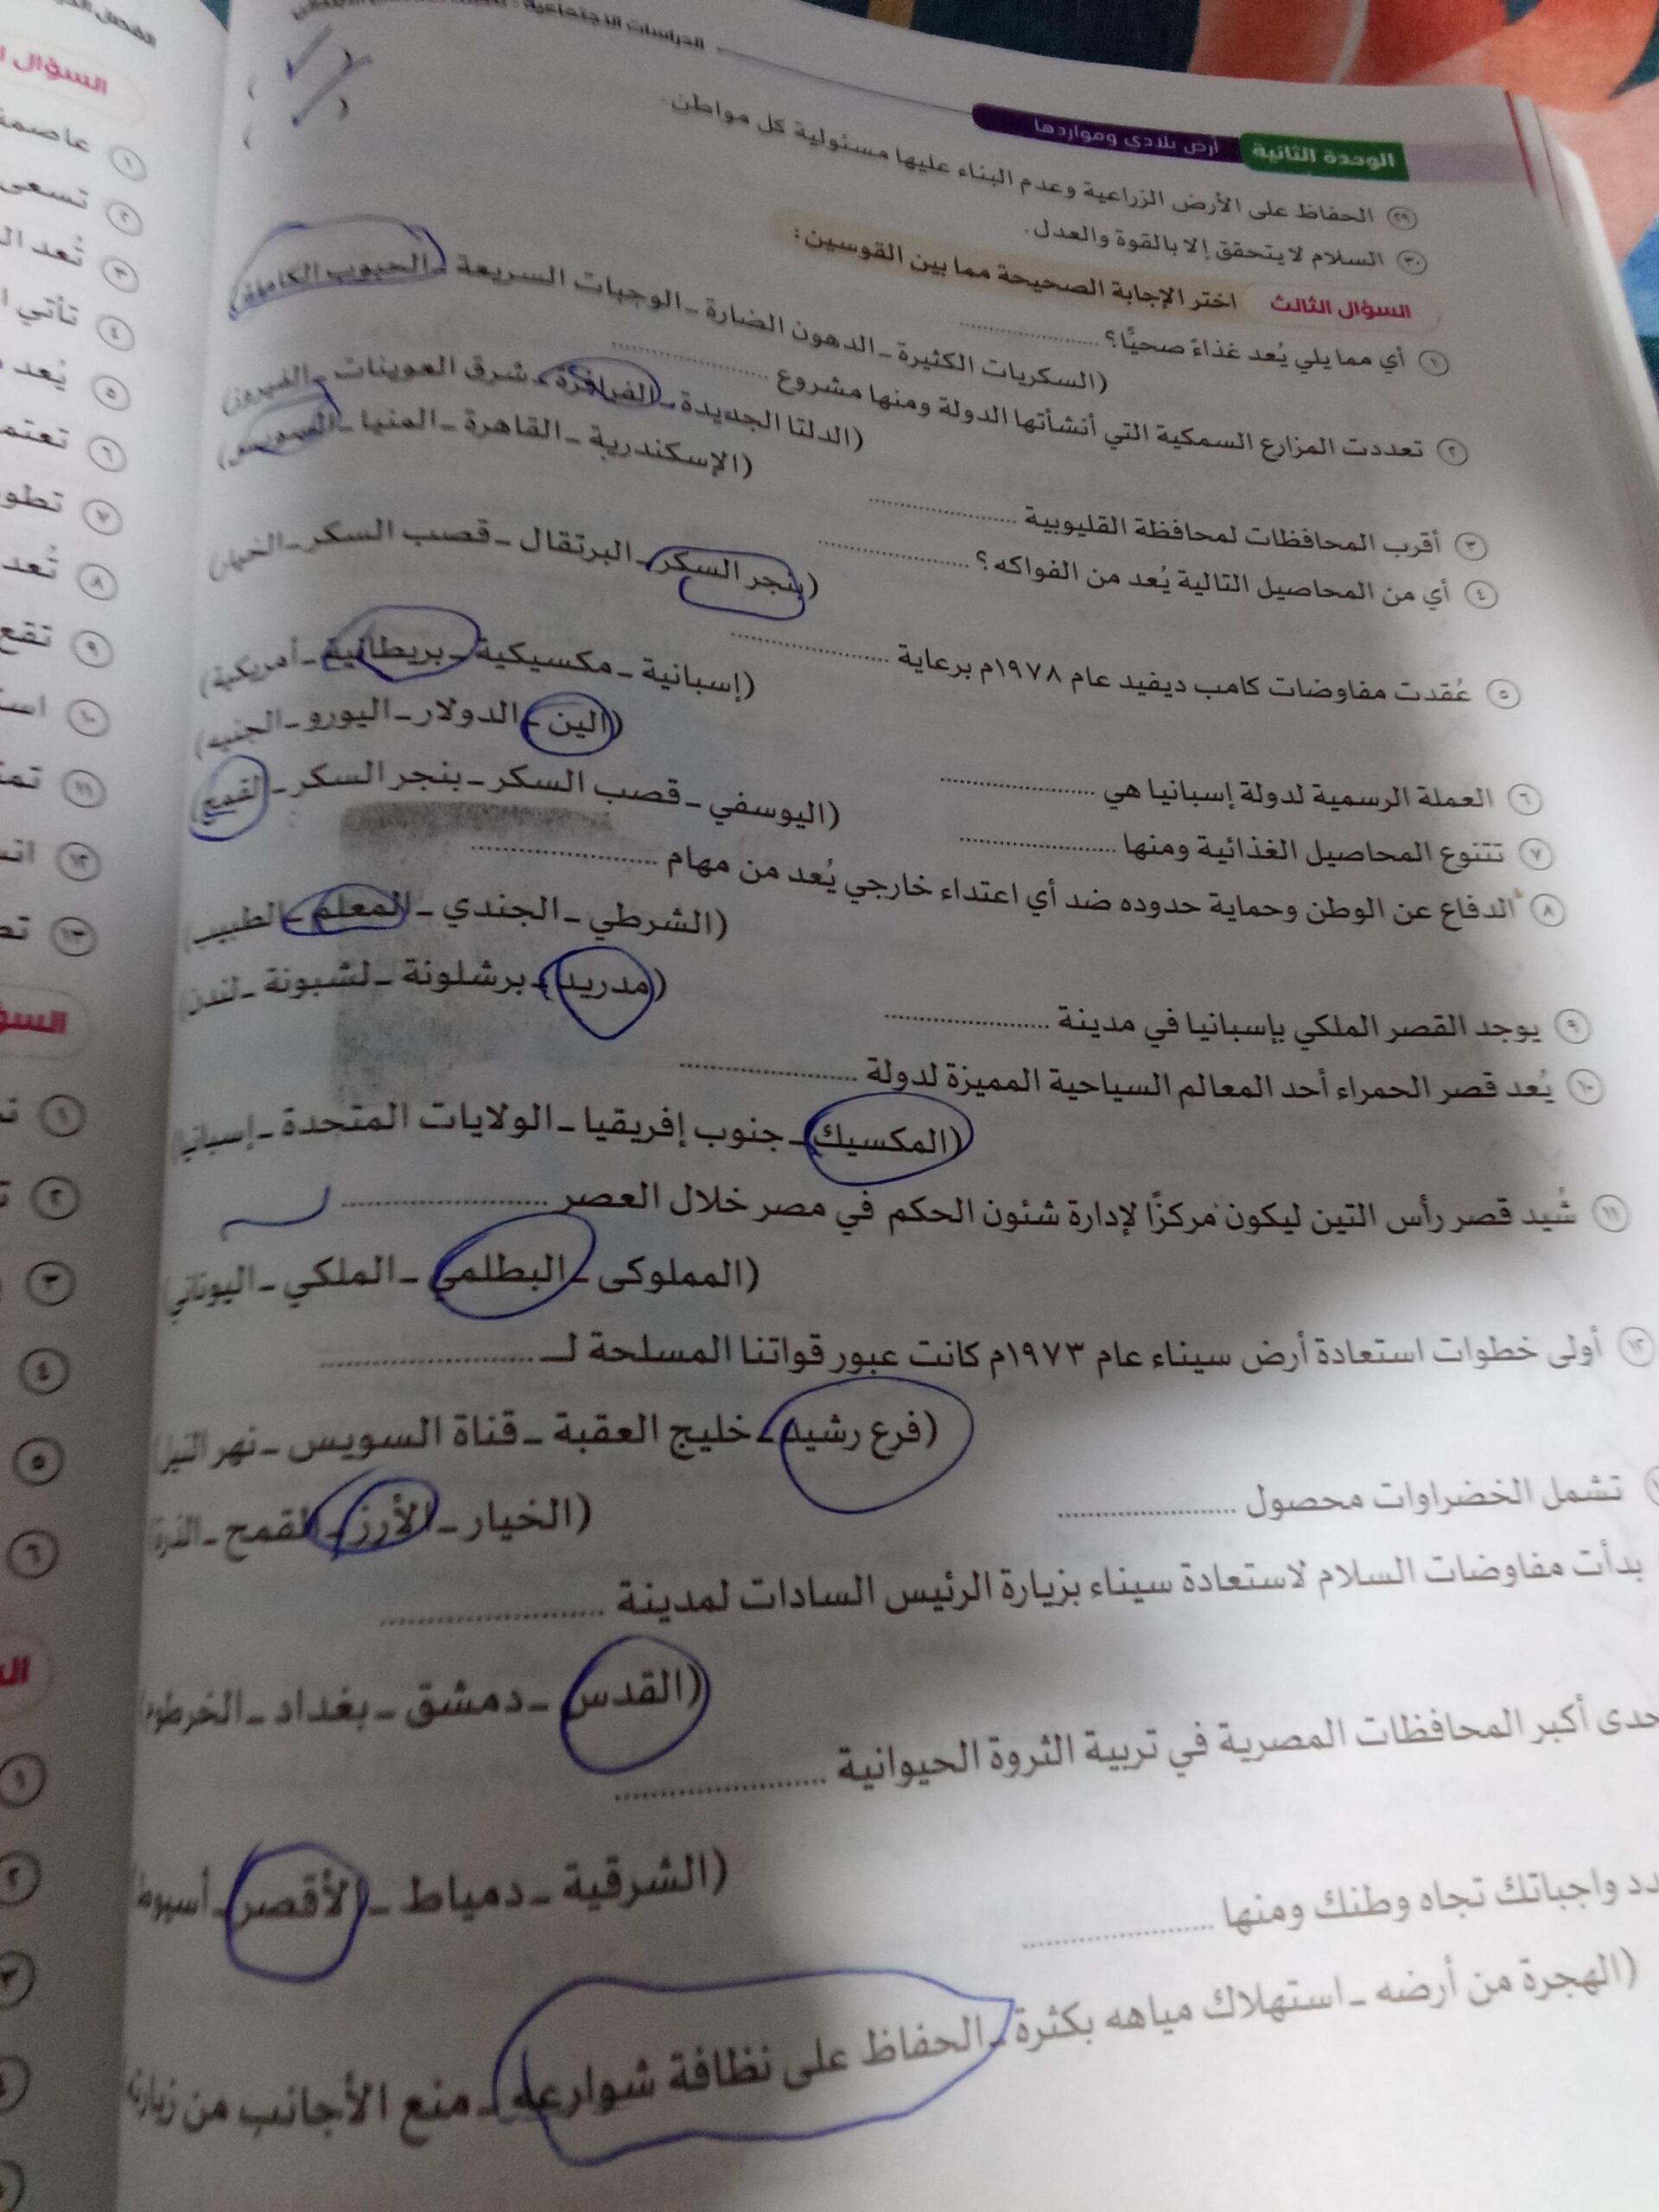 الدراسات الاجتماعية
الوحدة الثانية أرض بلادي ومواردها
٢٩ الحفاظ على الأرض الزراعية وعدم البناء عليها مسئولية كل مواطن.
٣٠ السلام لا يتحقق إلا بالقوة والعدل.
السؤال الثالث اختر الإجابة الصحيحة مما بين القوسين:
١ أي مما يلي يُعد غذاءً صحيًّا؟ ....................
(السكريات الكثيرة – الدهون الضارة – الوجبات السريعة – الحبوب الكاملة)
٢ تعددت المزارع السمكية التي أنشأتها الدولة ومنها مشروع ....................
(الدلتا الجديدة – الفرافرة – شرق العوينات – الفيروز)
(الإسكندرية – القاهرة – المنيا – السويس)
٣ أقرب المحافظات لمحافظة القليوبية ....................
٤ أي من المحاصيل التالية يُعد من الفواكه؟ ....................
(بنجر السكر – البرتقال – قصب السكر – الخيار)
٥ عُقدت مفاوضات كامب ديفيد عام ١٩٧٨م برعاية ....................
(إسبانية – مكسيكية – بريطانية – أمريكية)
(الين – الدولار – اليورو – الجنيه)
٦ العملة الرسمية لدولة إسبانيا هي ....................
(اليوسفي – قصب السكر – بنجر السكر – القمح)
٧ تتنوع المحاصيل الغذائية ومنها ....................
٨ الدفاع عن الوطن وحماية حدوده ضد أي اعتداء خارجي يُعد من مهام ....................
(الشرطي – الجندي – المعلم – الطبيب)
(مدريد – برشلونة – لشبونة – لندن)
٩ يوجد القصر الملكي بإسبانيا في مدينة ....................
١٠ يُعد قصر الحمراء أحد المعالم السياحية المميزة لدولة ....................
(المكسيك – جنوب إفريقيا – الولايات المتحدة – إسبانيا)
١١ شُيد قصر رأس التين ليكون مركزًا لإدارة شئون الحكم في مصر خلال العصر ....................
(المملوكى – البطلمي – الملكي – اليوناني)
١٢ أولى خطوات استعادة أرض سيناء عام ١٩٧٣م كانت عبور قواتنا المسلحة لـ ....................
(فرع رشيد – خليج العقبة – قناة السويس – نهر النيل)
تشمل الخضراوات محصول ....................
(الخيار – الأرز – القمح – الذرة)
بدأت مفاوضات السلام لاستعادة سيناء بزيارة الرئيس السادات لمدينة ....................
(القدس – دمشق – بغداد – الخرطوم)
حدى أكبر المحافظات المصرية في تربية الثروة الحيوانية ....................
(الشرقية – دمياط – الأقصر – أسيوط)
دد واجباتك تجاه وطنك ومنها ....................
(الهجرة من أرضه – استهلاك مياهه بكثرة – الحفاظ على نظافة شوارعه – منع الأجانب من زيارته
السؤال
١ عاصمة
٢ تسعى
٣ تُعد
٤ تأتي
٥ يُعد
٦
٧
٨ تُعد
٩ تقع
١٠
١١
١٢
١٣
١
٢
٣
٤
٥
٦
١
٢
٣